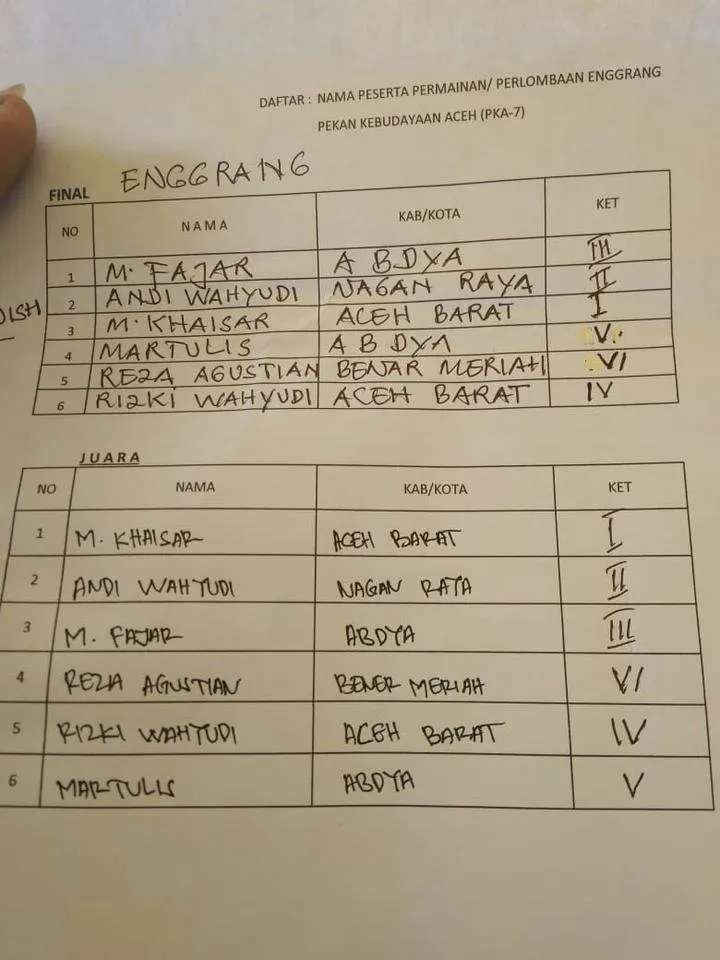 DAFTAR : NAMA PESERTA PERMAINAN/ PERLOMBAAN ENGGRANG
PEKAN KEBUDAYAAN ACEH (PKA-7)
FINAL ENGGRANG
NO NAMA KAB/KOTA KET
1 M. FAJAR ABDYA III
2 ANDI WAHYUDI NAGAN RAYA II
3 M. KHAISAR ACEH BARAT I
4 MARTULIS ABDYA V.
5 REZA AGUSTIAN BENAR MERIAH VI
6 RIZKI WAHYUDI ACEH BARAT IV
JUARA
NO NAMA KAB/KOTA KET
1 M. KHAISAR ACEH BARAT I
2 ANDI WAHYUDI NAGAN RAYA II
3 M. FAJAR ABDYA III
4 REZA AGUSTIAN BENER MERIAH VI
5 RIZKI WAHYUDI ACEH BARAT IV
6 MARTULIS ABDYA V